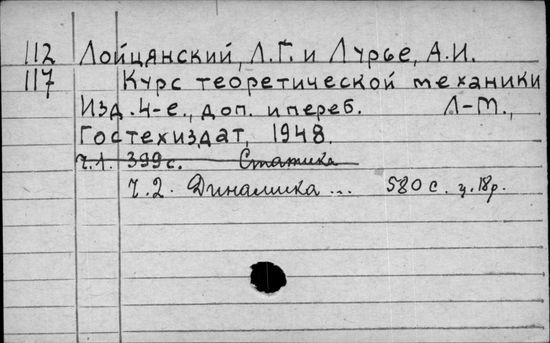 112 Лойцянский, Л.Г. и Лурье, А.И.
117 Курс теоретической механики
Изд. 4-е., доп. и переб. Л-М.,
Гостехиздат, 1948.
ч.1. 399 с. Статика
ч.2. Динамика ... 580 с. ц. 18 р.